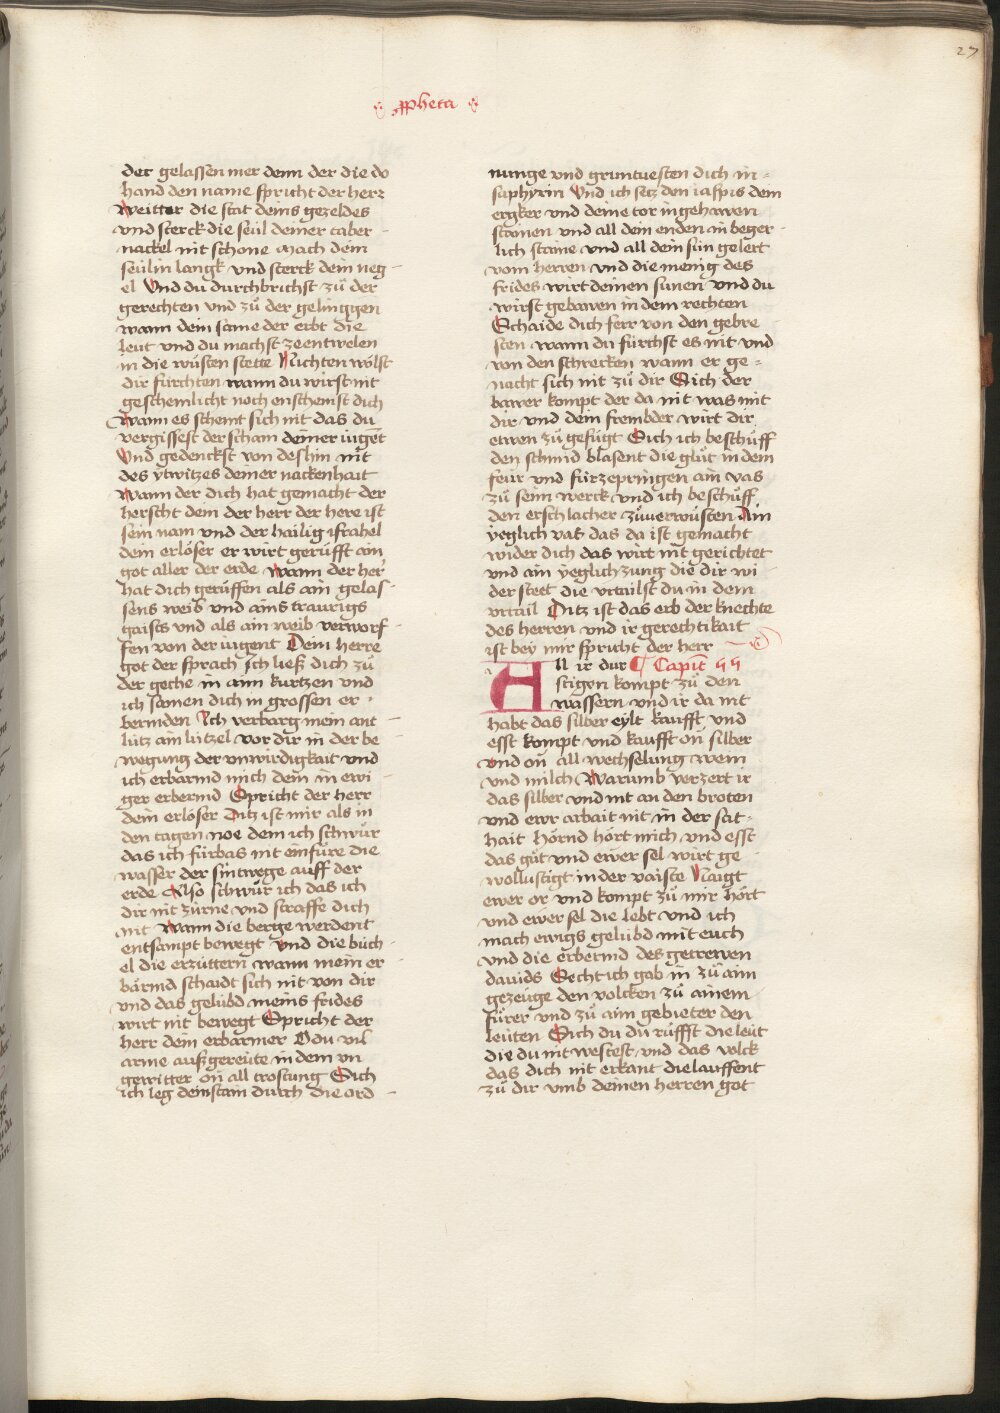 27
ppheta
der gelassen mer denn der die do
hand den name spricht der herr
Weitter die stat deins gezeldes
vnd sterck die seul deiner taber-
nackel nit schone mach dein
seulin langk vnd sterck dein neg-
el Vnd du durchbrichst zů der
gerechten vnd zů der gelinggen
wann dein same der erbt die
leut vnd du machst ze entwelen
in die wůsten stette Nichten wölst
dir fürchten wann du wirst nit
geschemlicht noch enschemst dich
Wann es schemt sich nit das du
vergissest der scham deiner iugẽt
Vnd gedenckst von deshin nit
des ytwitzes deiner nackenhait
Wann der dich hat gemacht der
herscht dein der herr der here ist
sein nam vnd der hailig israhel
dein erlöser er wirt gerüfft ain
got aller der erde Wann der her
hat dich gerüffen als ain gelas-
sens weib vnd ains traurigs
gaists vnd als ain weib verworf-
fen von der iugent Dein herre
got der sprach Ich ließ dich zů
der geche in aim kurtzen vnd
ich samen dich in grossen er-
bermden Ich verbarg mein ant-
lütz ain lützel vor dir in der be
wegung der vnwirdigkait vnd
ich erbarmd mich dein in ewi-
ger erbermd Spricht der herr
dein erlöser Ditz ist mir als in
den tagen noe dem ich schwůr
das ich fürbas nit einfüre die
wasser der sintwege auff der
erde Also schwůr ich das ich
dir nit zürne vnd straffe dich
nit Wann die berge werdent
entsampt bewegt Vnd die büch-
el die erzüttern wann mein er
bärmd schaidt sich nit von dir
vnd das gelübd meins frides
wirt nit bewegt Spricht der
herr dein erbarmer O du vil
arme außgereüte in dem vn
gewitter on all trostung Sich
ich leg dein stain durch die ord-
nunge vnd gruntuesten dich in-
saphyrin Vnd ich setz den iaspis dein
ergker vnd deine tor in gehawen
stainen vnd all dein enden in beger-
lich staine vnd all dein sün gelert
vom herren vnd die menig des
frides wirt deinen sunen vnd du
wirst gebawen in dem rechten
Schaide dich ferr von den gebre
sten wann du fürchst es nit vnd
von den schrecken wann er ge-
nacht sich nit zů dir Sich der
bawer kompt der da nit was mit
dir vnd dein frembder wirt dir
etwen zů gefügt Sich ich beschůff
den schmid blasent die glůt in dem
feür vnd fürzepringen ain vas
zů seim werck vnd ich beschůff
den erschlacher zůuerwüsten Ain
yeglich vas das da ist gemacht
wider dich das wirt nit gerichtet
vnd ain yeglich zung die dir wi-
der steet die vrtailst du in dem
vrtail Ditz ist das erb der knechte
des herren vnd ir gerechtikait
ist bey mir spricht der herr
All ir dur Capit̃ 55
stigen kompt zů den
wassern vnd ir da nit
habt das silber eylt kaufft vnd
esst kompt vnd kaufft on silber
vnd on all wechselung wein
vnd milch Warumb verzert ir
das silber vnd nit an den broten
vnd ewr arbait nit in der sat-
hait Hörnd hört mich vnd esst
das gůt vnd ewer sel wirt ge-
wollustigt in der vaiste Naigt
ewer or vnd kompt zů mir hört
vnd ewer sel die lebt vnd ich
mach ewigs gelübd mit euch
vnd die erbermd des getrewen
dauids Secht ich gab in zů aim
gezeüge den volcken zů ainem
fürer vnd zů aim gebieter den
leüten Sich du du rüffst die leüt
die du nit westest vnd das volck
das dich nit erkant die lauffent
zů dir vmb deinen herren got